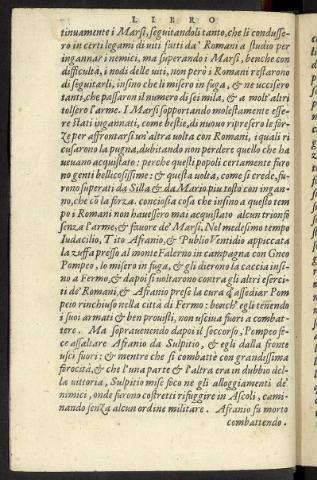 LIBRO
tinuamente i Marsi, seguitandoli tanto, che li condusse-
ro in certi legami di uiti fatti da' Romani a studio per
ingannar i nemici, ma superando i Marsi, benche con
difficultà, i nodi delle uiti, non però i Romani restarono
di seguitarli, insino che li misero in fuga, & ne uccisero
tanti, che passaron il numero di sei mila, & a molt'altri
tolsero l'arme. I Marsi sopportando molestamente esse-
re stati ingannati, come bestie, di nuouo ripresero le for-
ze per affrontarsi un'altra uolta con Romani, i quali ri
cusarono la pugna, dubitando non perdere quello che ha
ueuano acquistato: perche questi popoli certamente furo
no genti bellicosissime: & questa uolta, come si crede, fu-
rono superati da Silla & da Mario piu tosto con ingan-
no, che cō la forza. conciosia cosa che insino a questo tem
po i Romani non hauessero mai acquistato alcun trionfo
senza l'arme, & fauore de' Marsi. Nel medesimo tempo
Iudacilio, Tito Afranio, & Publio Ventidio appiccata
la zuffa presso al monte Falerno in campagna con Gneo
Pompeo, lo misero in fuga, & gli dierono la caccia insi-
no a Fermo, & dapoi si uoltarono contra gli altri eserci-
ti de' Romani, & Afranio prese la cura d'assediar Pom
peo rinchiuso nella città di Fermo: bench' egli tenendo
i suoi armati & ben prouisti, non usciua fuori a combat-
tere. Ma soprauenendo dapoi il soccorso, Pompeo fe-
ce assaltare Afranio da Sulpitio, & egli dalla fronte
usci fuori: & mentre che si combattè con grandissima
ferocità, & che l'una parte & l'altra era in dubbio del-
la uittoria, Sulpitio mise foco ne gli alloggiamenti de'
nimici, onde furono costretti rifuggire in Ascoli, cami-
nando senza alcun ordine militare. Afranio fu morto
combattendo.